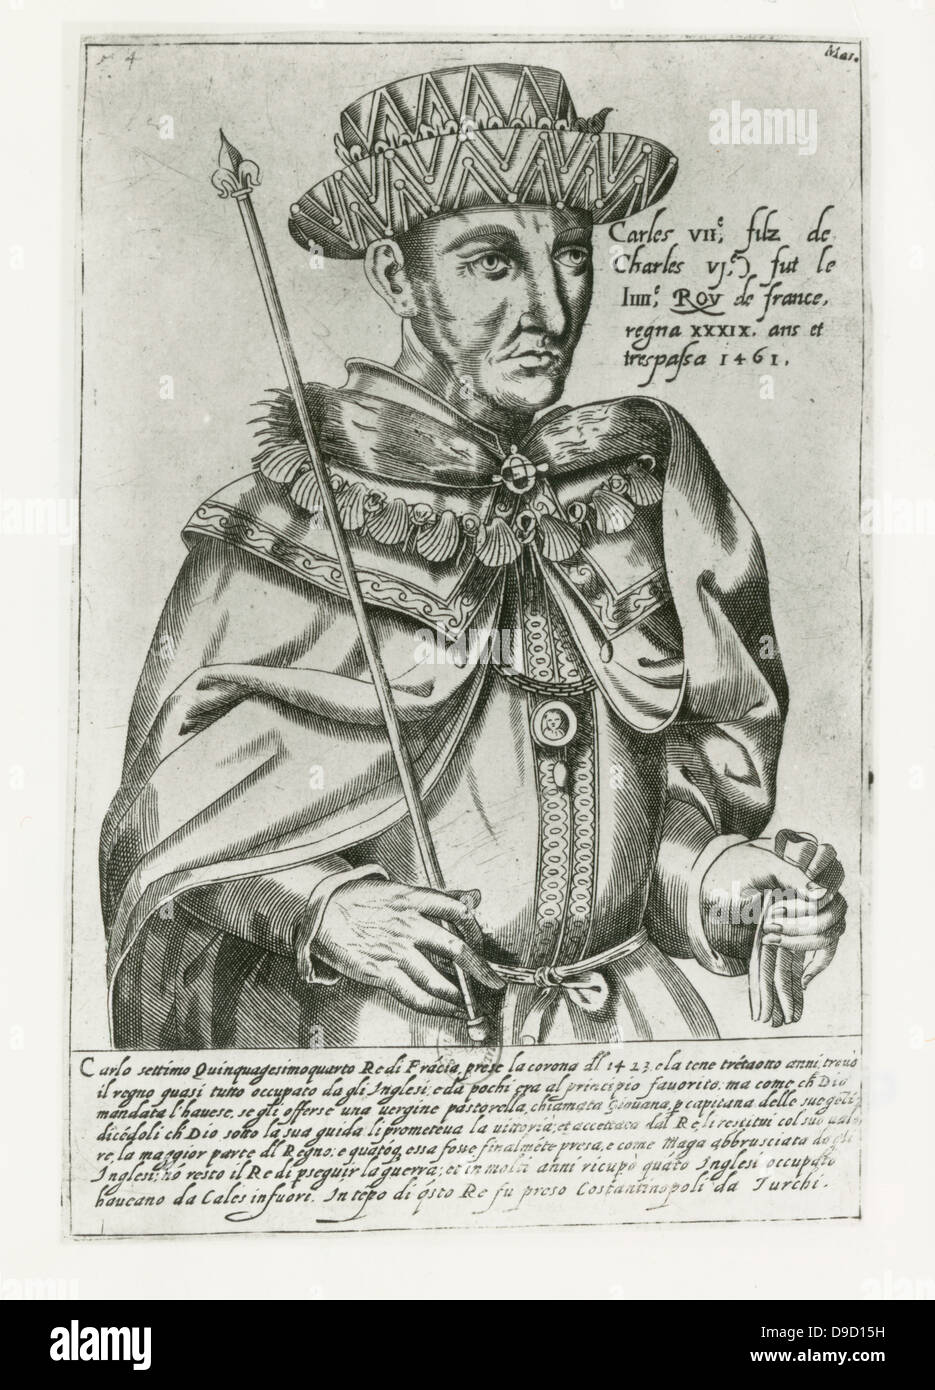 54
Mas.
Carles VIIᵉ, filz de
Charles VJᵉ, fut le
IIIIᵉ, ROY de france,
regna XXXIX. ans et
trespassa 1461.
Carlo settimo Quinquagesimoquarto Re di Frácia, prese la corona dl 1423. e la tene trétaotto anni, trovò
il regno quasi tutto occupato da gli Inglesi, e da pochi era al principio favorito. ma come ch Dio
mandata l'havese, se gli offerse una vergine pastorella, chiamata Giovana, p capitana delle sue géti,
dicédoli ch Dio sotto la sua guida li prometeva la vittoria; et accettata dal Re, li restitui col suo valo,,
re, la maggior parte dl Regno: e quátoq, essa fosse finalméte presa, e come Maga abbrusciata da gli
Inglesi; nó resto il Re di pseguir la guerra; et in molti anni ricupò quáto Inglesi occupato
haveano da Cales infuori. In tépo di qsto Re fu preso Costantinopoli da Turchi.
alamy
Image ID: D9D15H
www.alamy.com